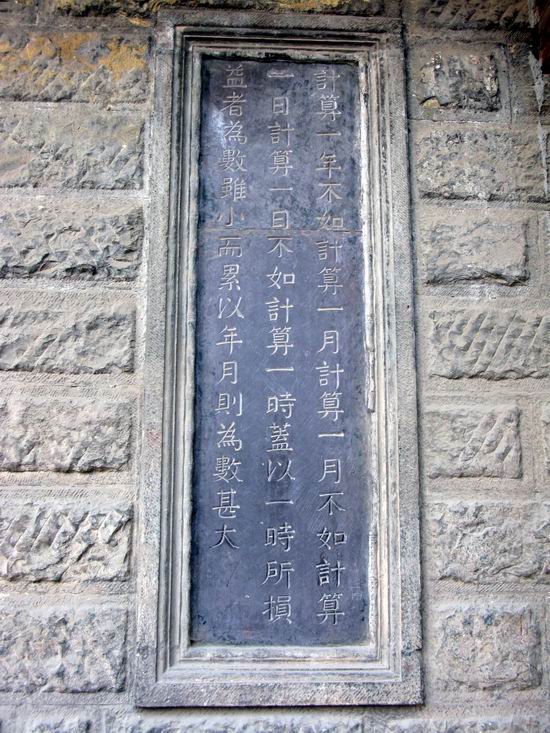 計算一年不如計算一月計算一月不如計算
一日計算一日不如計算一時蓋以一時所損
益者為數雖小而累以年月則為數甚大